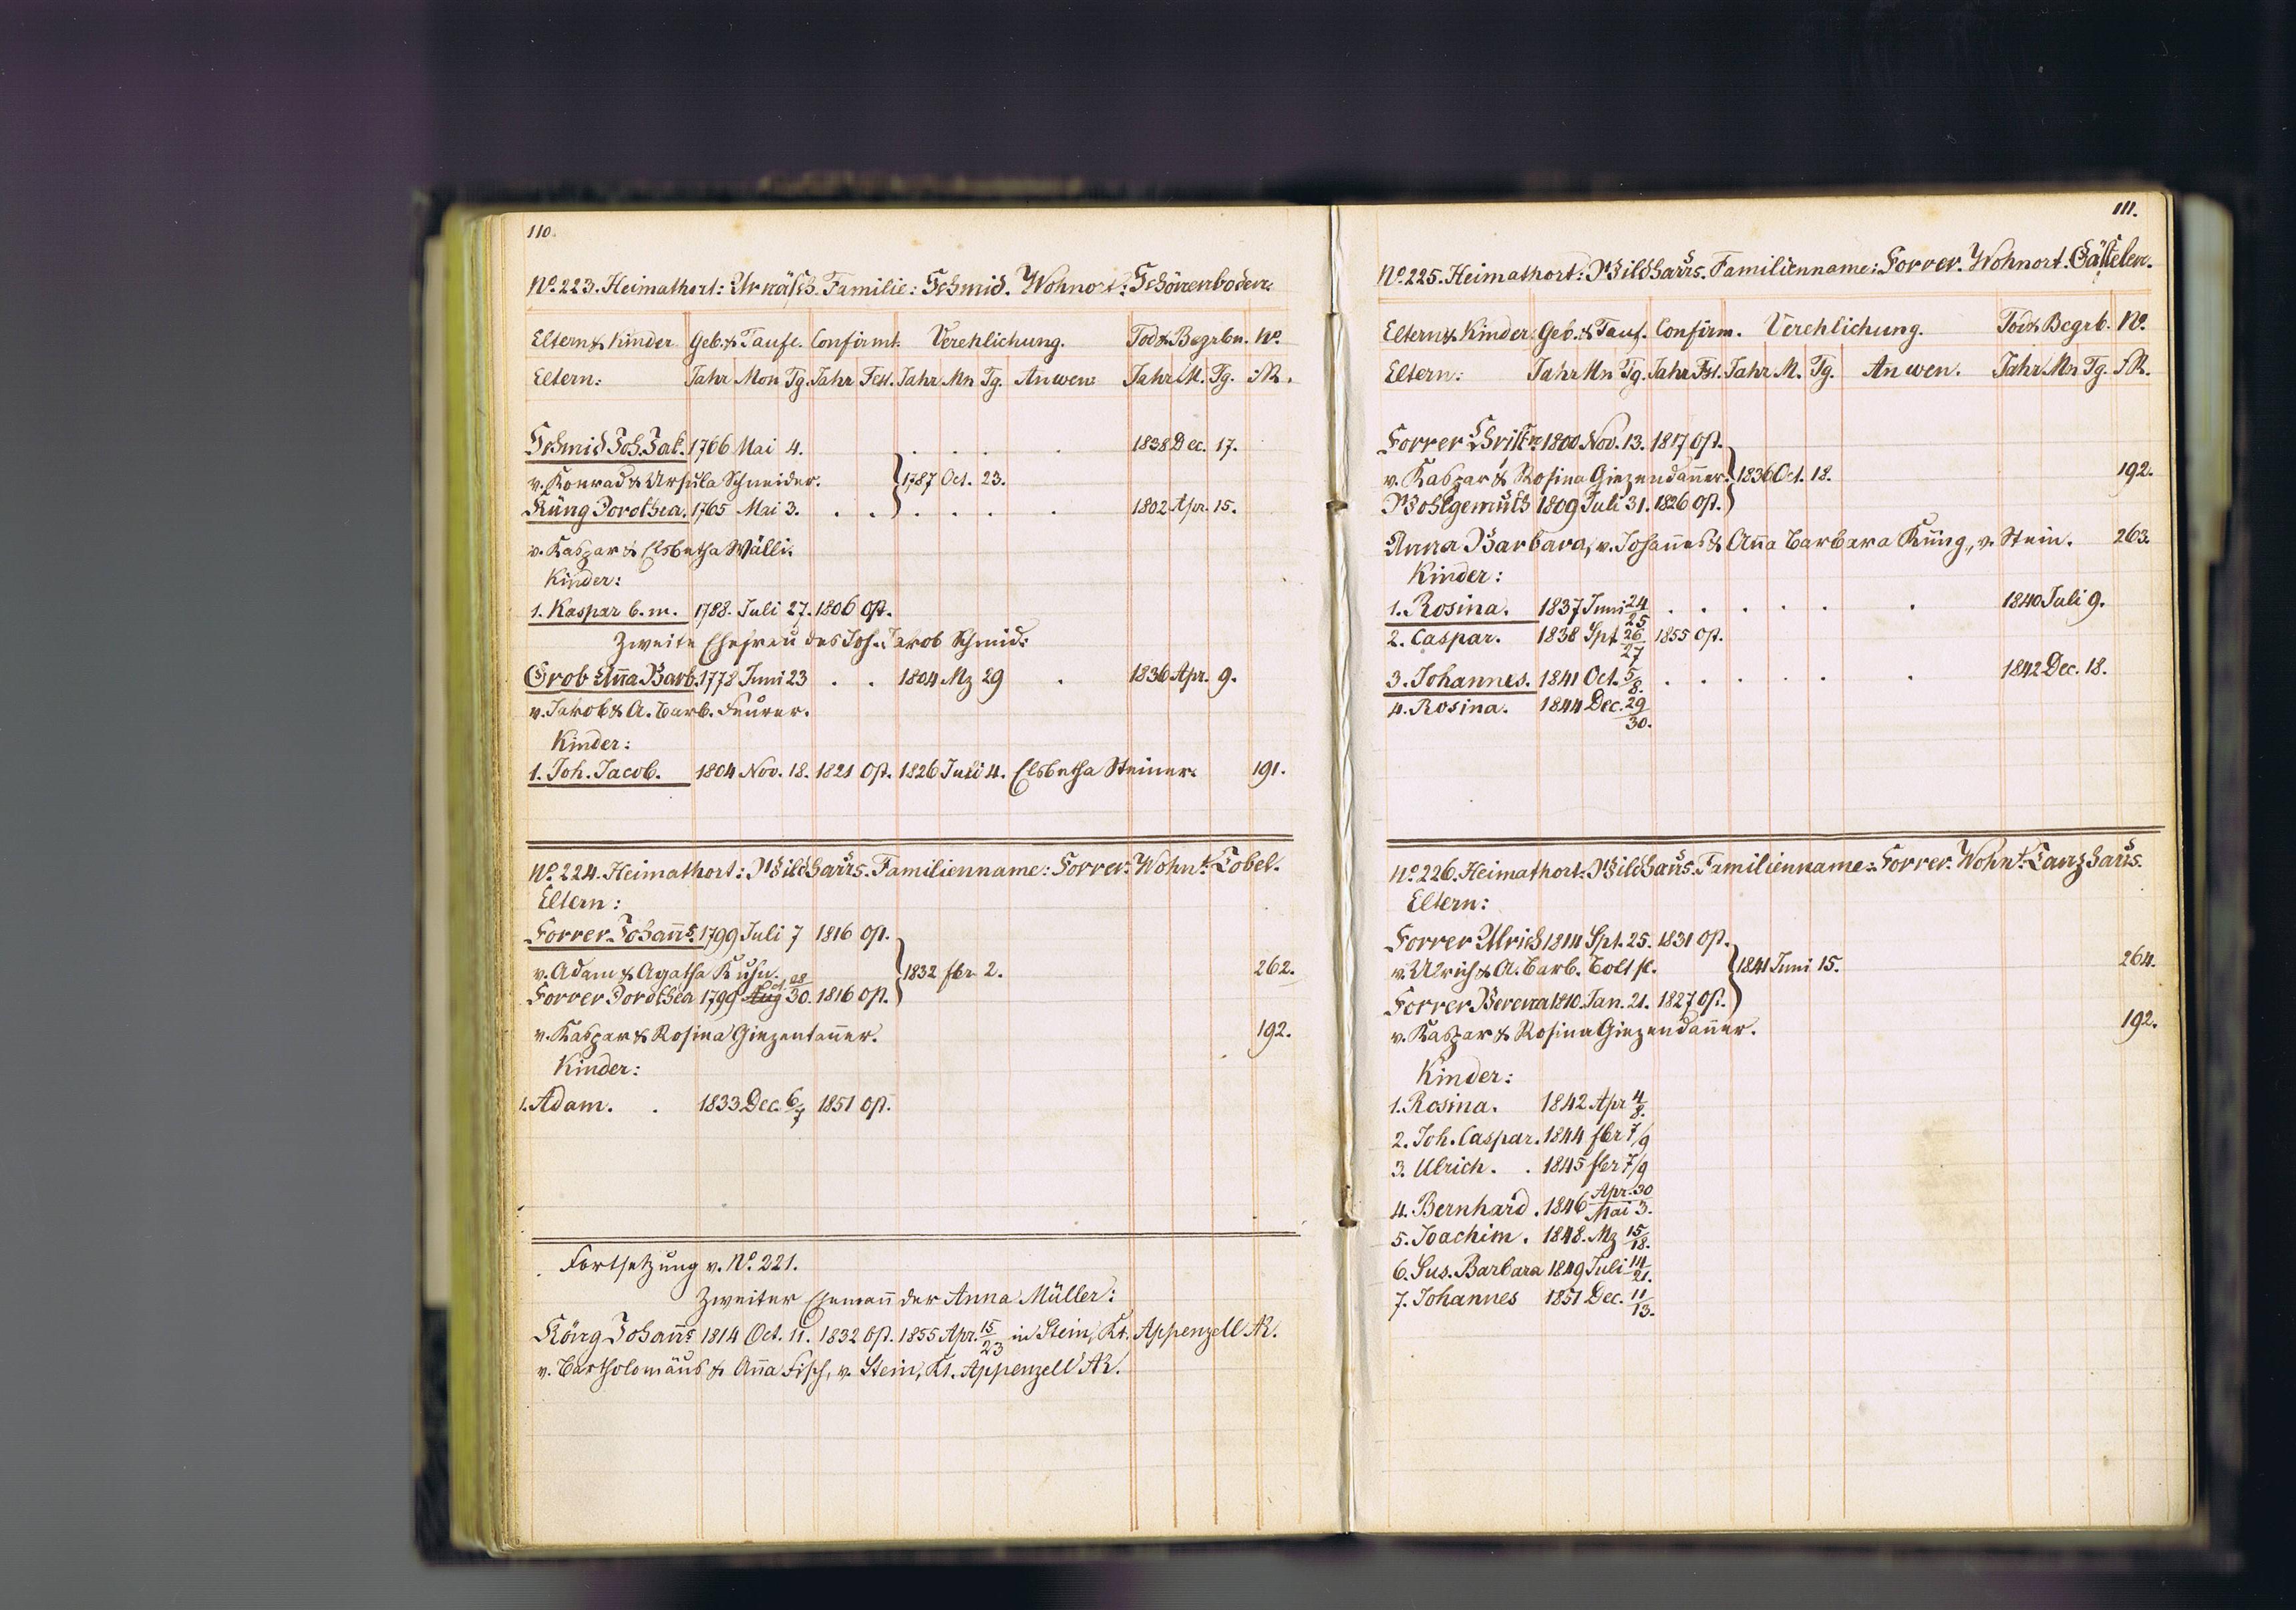 110.
No. 223. Heimathort: Urnäsch. Familie: Schmid. Wohnort: Schönenboden.
Eltern & Kinder. Geb. & Taufe. Confirmt. Verehlichung. Tod & Begrbn. No.
Eltern: Jahr Mon Tg. Jahr Fest. Jahr Mn Tg. An wen: Jahr M. Tg. :R.
Schmid Joh. Jak. 1766 Mai 4. . . . . 1838 Dec. 17.
v. Konrad & Ursula Schneider. } 1787 Oct. 23.
Küng Dorothea. 1765 Mai 3. . . . . . . 1802 Apr. 15.
v. Kaspar & Elsbetha Wälli.
Kinder:
1. Kaspar b. m. 1788. Juli 27. 1806 Ost.
Zweite Ehefrau des Joh. Jakob Schmid:
Grob Aña Barb. 1778 Juni 23 . . 1804 Mz 29 . 1836 Apr. 9.
v. Jakob & A. Barb. Feurer.
Kinder:
1. Joh. Jacob. 1804 Nov. 18. 1821 Ost. 1826 Juli 4. Elsbetha Steiner. 191.
No. 224. Heimathort: Wildhaus. Familienname: Forrer. Wohnt. Tobel.
Eltern:
Forrer Johañs. 1799 Juli 7 1816 Ost.
v. Adam & Agatha Kuhn. } 1832 fbr. 2. 262.
Forrer Dorothea 1799 Aug Oct. 28/30. 1816 Ost.
v. Kaspar & Rosina Giezentañer. 192.
Kinder:
1. Adam. . 1833 Dec. 6/7 1851 Ost.
Fortsetzung v. No. 221.
Zweiter Ehemañ der Anna Müller:
König Johañs 1814 Oct. 11. 1832 Ost. 1855 Apr. 15/23 in Stein, Kt. Appenzell AR.
v. Bartholomäus & Aña Fisch, v. Stein, Kt. Appenzell AR.
111.
No. 225. Heimathort: Wildhaus. Familienname: Forrer. Wohnort. Gästelen.
Eltern & Kinder. Geb. & Tauf. Confirm. Verehlichung. Tod & Begrb. No.
Eltern: Jahr Mn Tg. Jahr Fst. Jahr M. Tg. An wen. Jahr Mn Tg. :R.
Forrer Christn 1800 Nov. 13. 1817 Ost.
v. Kaspar & Rosina Giezendañer. } 1836 Oct. 18. 192.
Wohlgemuth 1809 Juli 31. 1826 Ost.
Anna Barbara, v. Johañes & Aña Barbara Küng, v. Stein. 263.
Kinder:
1. Rosina. 1837 Juni 24/25 . . . . . . 1840 Juli 9.
2. Caspar. 1838 Spt. 26/27 1855 Ost.
3. Johannes. 1841 Oct. 5/8. . . . . . . 1842 Dec. 18.
4. Rosina. 1844 Dec. 29/30.
No. 226. Heimathort: Wildhaus. Familienname: Forrer. Wohnt. Tanzhaus.
Eltern:
Forrer Ulrich 1814 Spt. 25. 1831 Ost.
v. Ulrich & A. Barb. Bolt sl. } 1841 Juni 15. 264.
Forrer Verena 1810. Jan. 21. 1827 Ost.
v. Kaspar & Rosina Giezendañer. 192.
Kinder:
1. Rosina. 1842 Apr 4/8.
2. Joh. Caspar. 1844 fbr 7/9
3. Ulrich. . 1845 fbr 7/9
4. Bernhard. 1846 Apr. 30/Mai 3.
5. Joachim. 1848. Mz 15/18.
6. Sus. Barbara 1849 Juli 14/21.
7. Johannes 1851 Dec. 11/13.